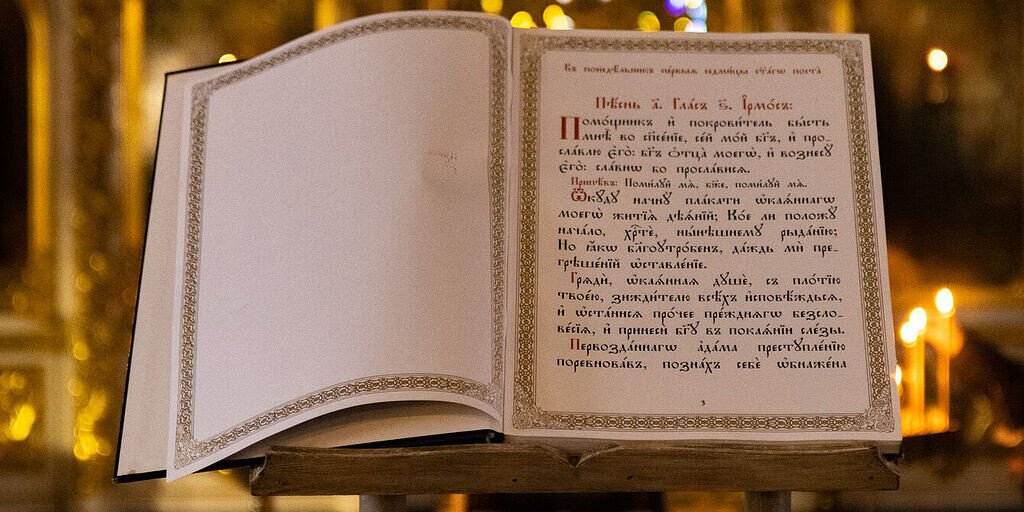 Въ понедѣльникъ пе́рвыя седми́цы ст҃а́гѡ поста̀
Пѣ́снь а҃. Гла́съ ѕ҃. І҆рмо́съ:
Помо́щникъ и҆ покрови́тель бы́сть
мнѣ̀ во сп҃се́нїе, се́й мо́й бг҃ъ, и҆ про-
сла́влю є҆го̀: бг҃ъ ѻ҆тца̀ моегѡ̀, и҆ вознесꙋ̀
є҆го̀: сла́внѡ бо просла́висѧ.
Припѣ́въ: Поми́лꙋй мѧ̀, бж҃е, поми́лꙋй мѧ̀.
Ѿкꙋ́дꙋ начнꙋ̀ пла́кати ѡ҆каѧ́ннагѡ
моегѡ̀ житїѧ̀ дѣѧ́нїй; Ко́е ли положꙋ̀
нача́ло, хрⷭ҇тѐ, ны́нѣшнемꙋ рыда́нїю;
Но ꙗ҆́кѡ бл҃гоꙋтро́бенъ, да́ждь мѝ пре-
грѣше́нїй ѡ҆ставле́нїе.
Грѧдѝ, ѡ҆каѧ́ннаѧ дꙋшѐ, съ пло́тїю
твое́ю, зижди́телю всѣ́хъ и҆сповѣ́ждьсѧ,
и҆ ѡ҆ста́нисѧ про́чее пре́жднѧгѡ безсло-
ве́сїѧ, и҆ принесѝ бг҃ꙋ въ покаѧ́нїи сле́зы.
Первозда́ннагѡ а҆да́ма престꙋпле́нїю
поревнова́въ, позна́хъ себѐ ѡ҆бнаже́на
з